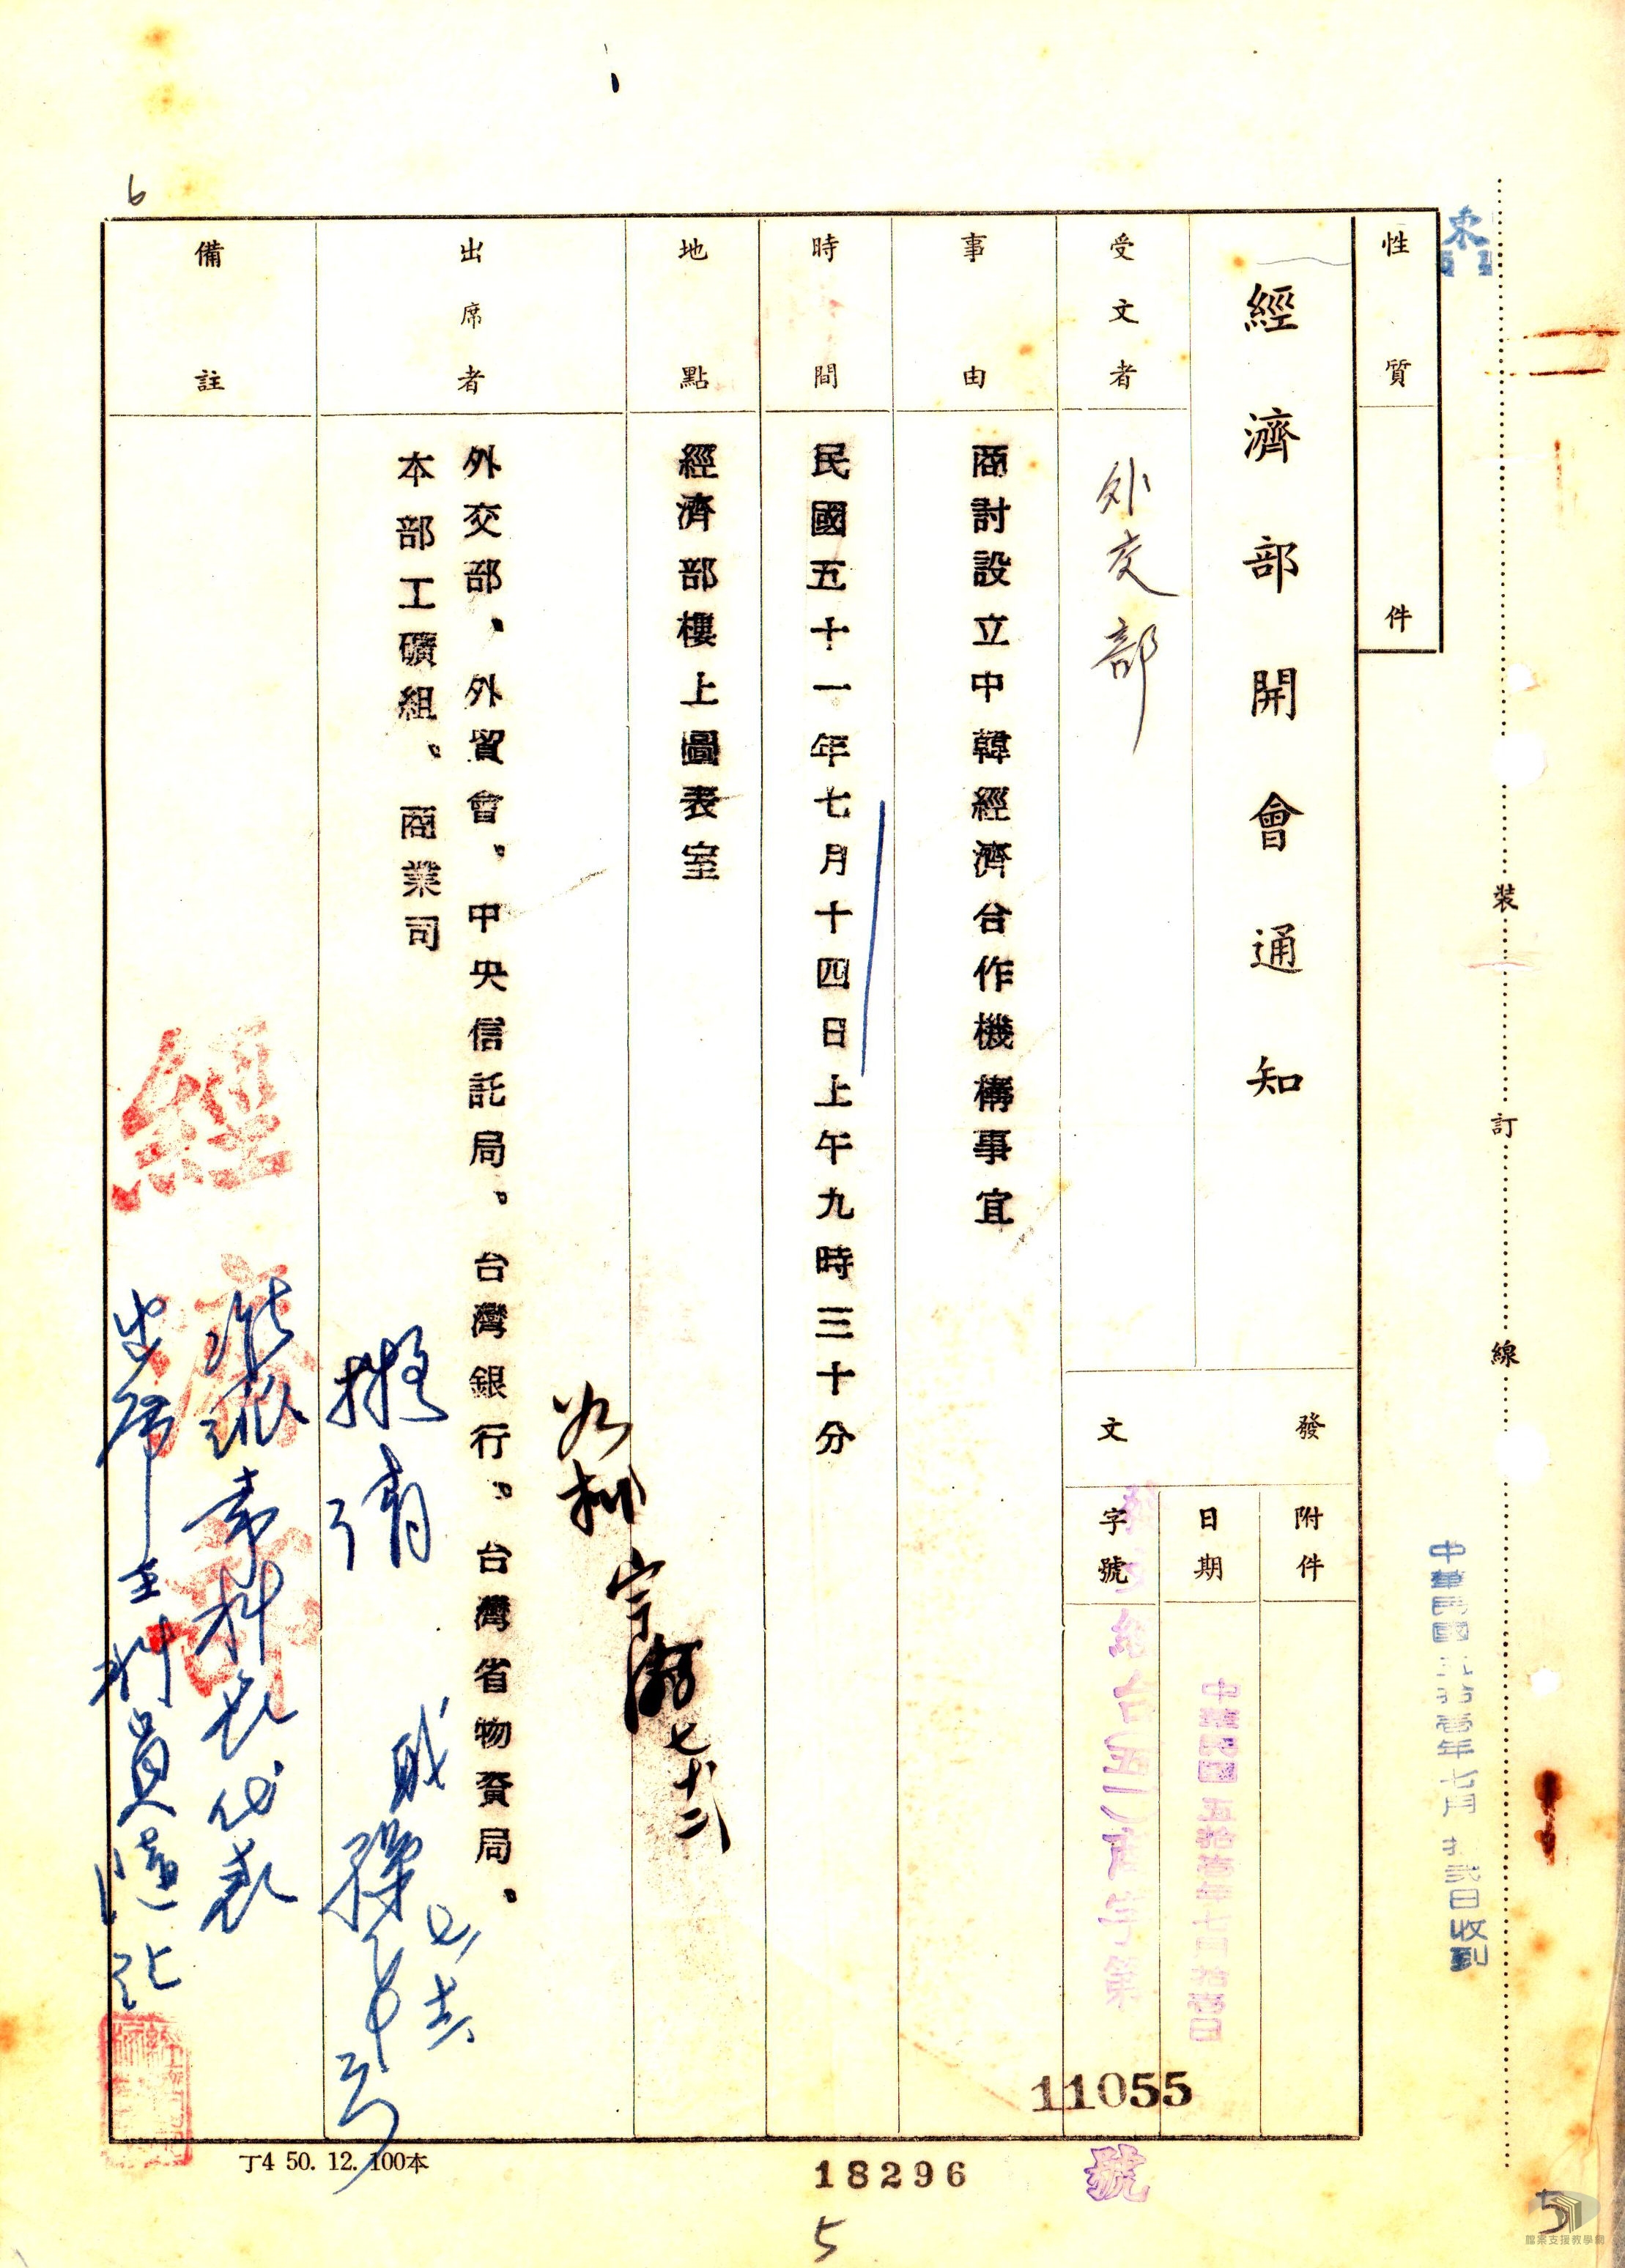 東
性質 件
經濟部開會通知
受文者 外交部
發文
附件
日期
字號
台 字第
11055
號
事由 商討設立中韓經濟合作機構事宜
時間 民國五十一年七月十四日上午九時三十分
地點 經濟部樓上圖表室
出席者 外交部、外貿會、中央信託局、台灣銀行、台灣省物資局、
本部工礦組、商業司
備註
經濟部
如擬
七十二
擬請
職
科長代表
出席王科員遠
裝 訂 線
中華民國五拾壹年七月拾貳日收到
丁4 50. 12. 100本
18296
5
5
6
檔案支援教學網